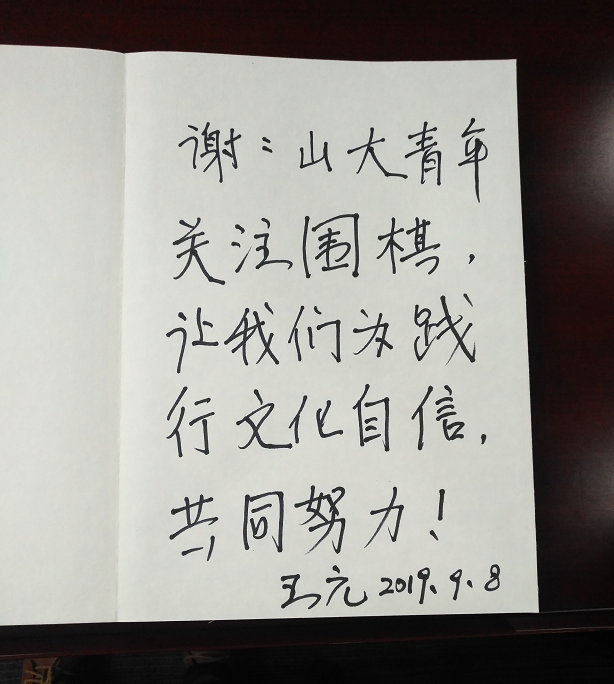 谢：山大青年
关注围棋，
让我们为践
行文化自信，
共同努力！
王元 2019.9.8